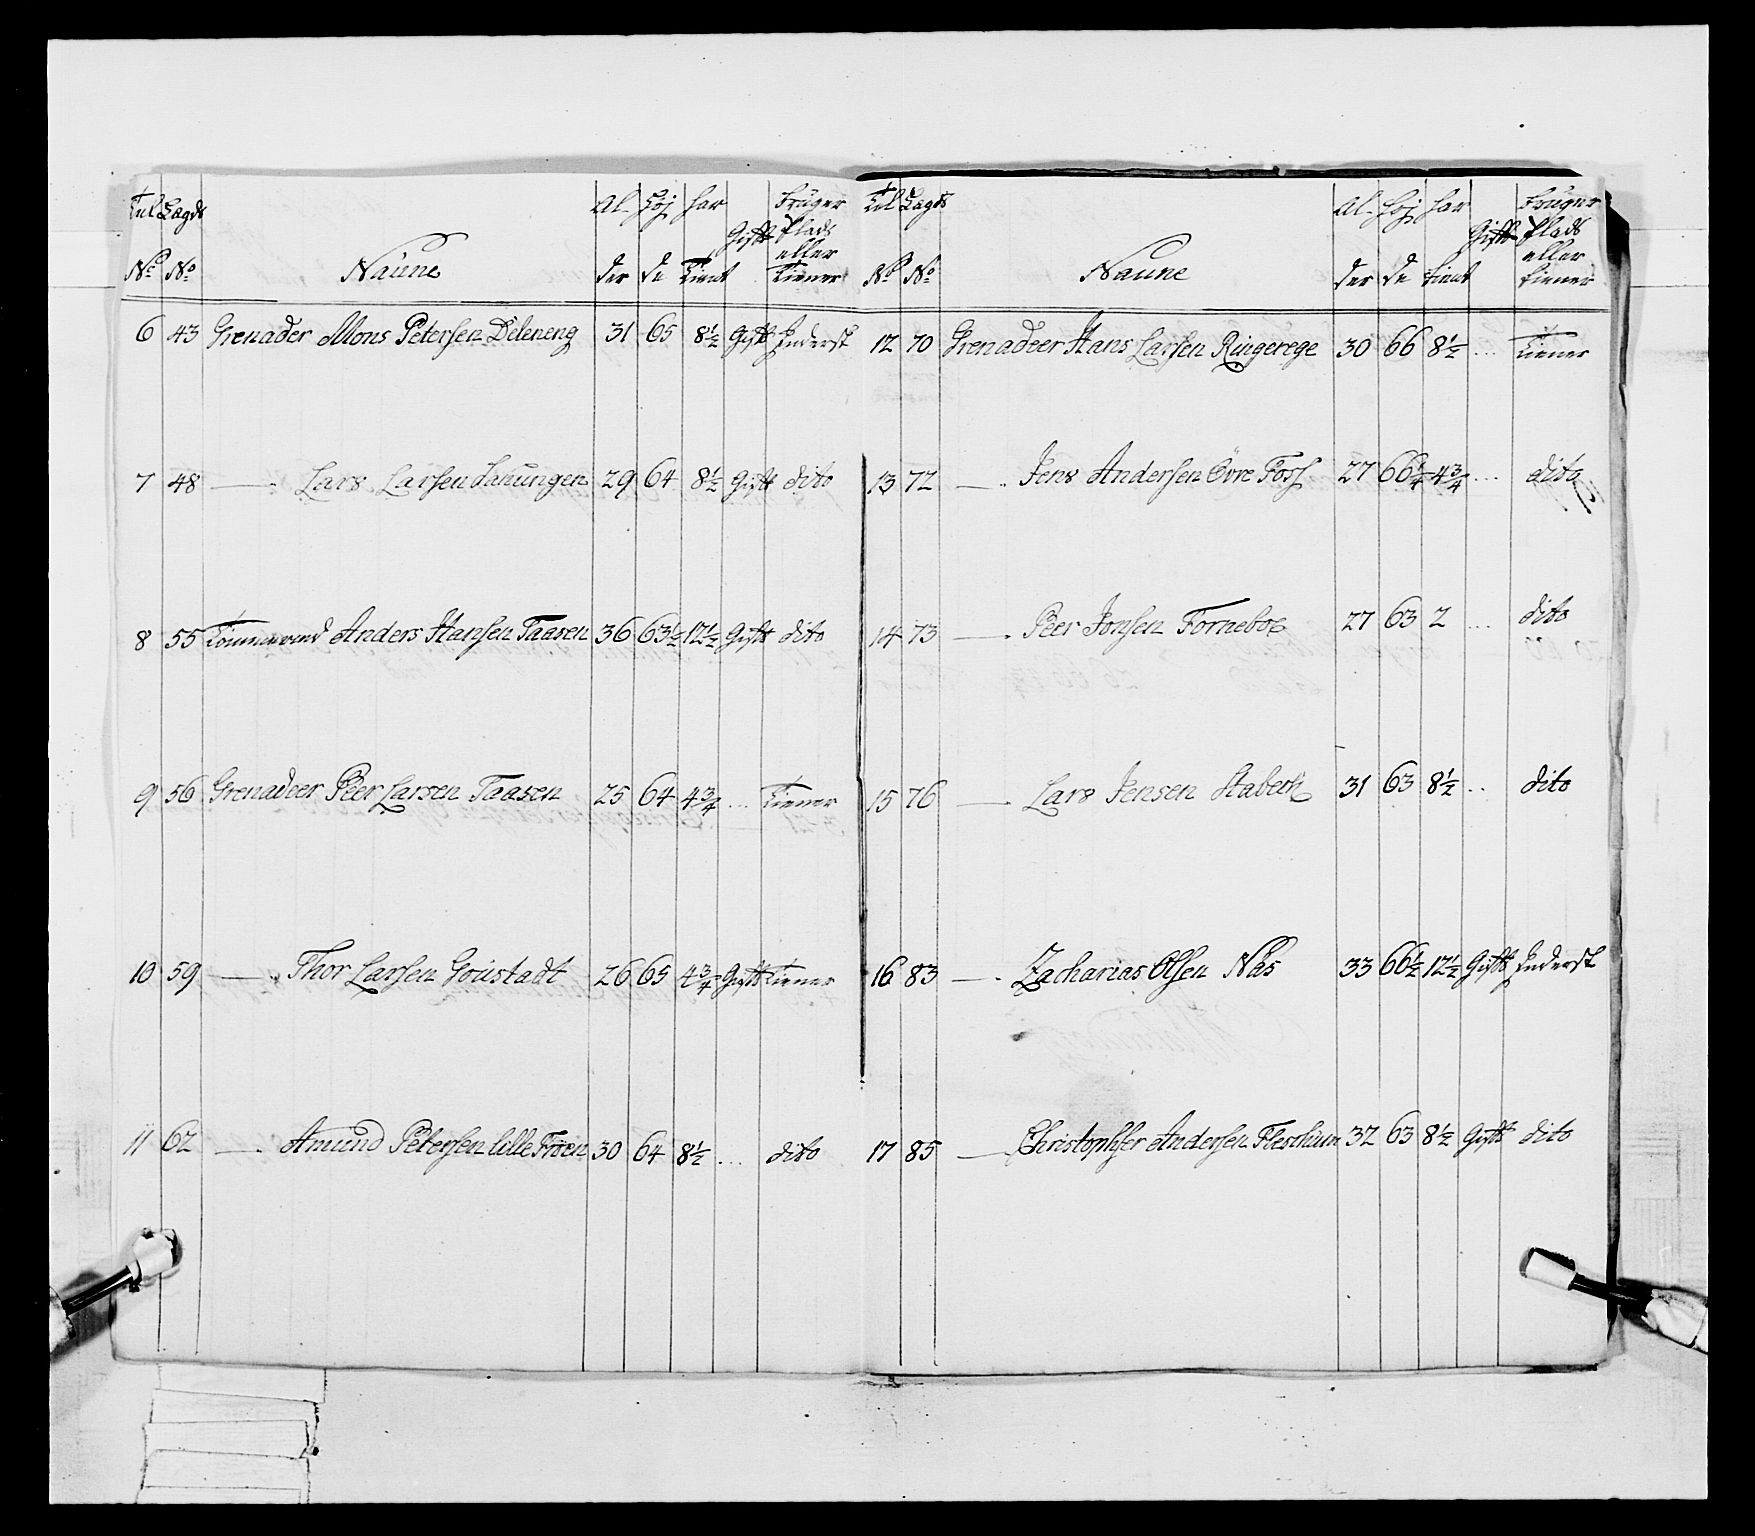 Tul Lagds Al- Höj har Bruger
Gift Plads
eller
No No Naune der de Tient Tiener
6 43 Grenader Mons Petersen Deleneng 31 65 8½ Gift Inderst
7 48 — Lars Larsen 29 64 8½ Gift dito
8 55 Anders Hansen Taasen 36 63½ 12½ Gift dito
9 56 Grenadeer Peer Larsen Taasen 25 64 4¾ ... Tiener
10 59 — Thor Larsen Goustadt 26 65 4¾ Gift Tiener
11 62 — Amund Petersen lille Froen 30 64 8½ ... dito
Tul Lagds Al- Höj har Bruger
Gift Plads
eller
No No Naune der de tient tiener
12 70 Grenadeer Hans Larsen Ringerege 30 66 8½ ... Tiener
13 72 — Jens Andersen Övre Foss 27 66¼ 4¾ ... dito
14 73 — Peer Jonsen Forneboe 27 63 2 ... dito
15 76 — Lars Jensen Stabeck 31 63 8½ .. dito
16 83 — Zacharias Olsen Näs 33 66½ 12½ Gift Inderst
17 85 — Christopher Andersen Fleschum 32 63 8½ Gift dito